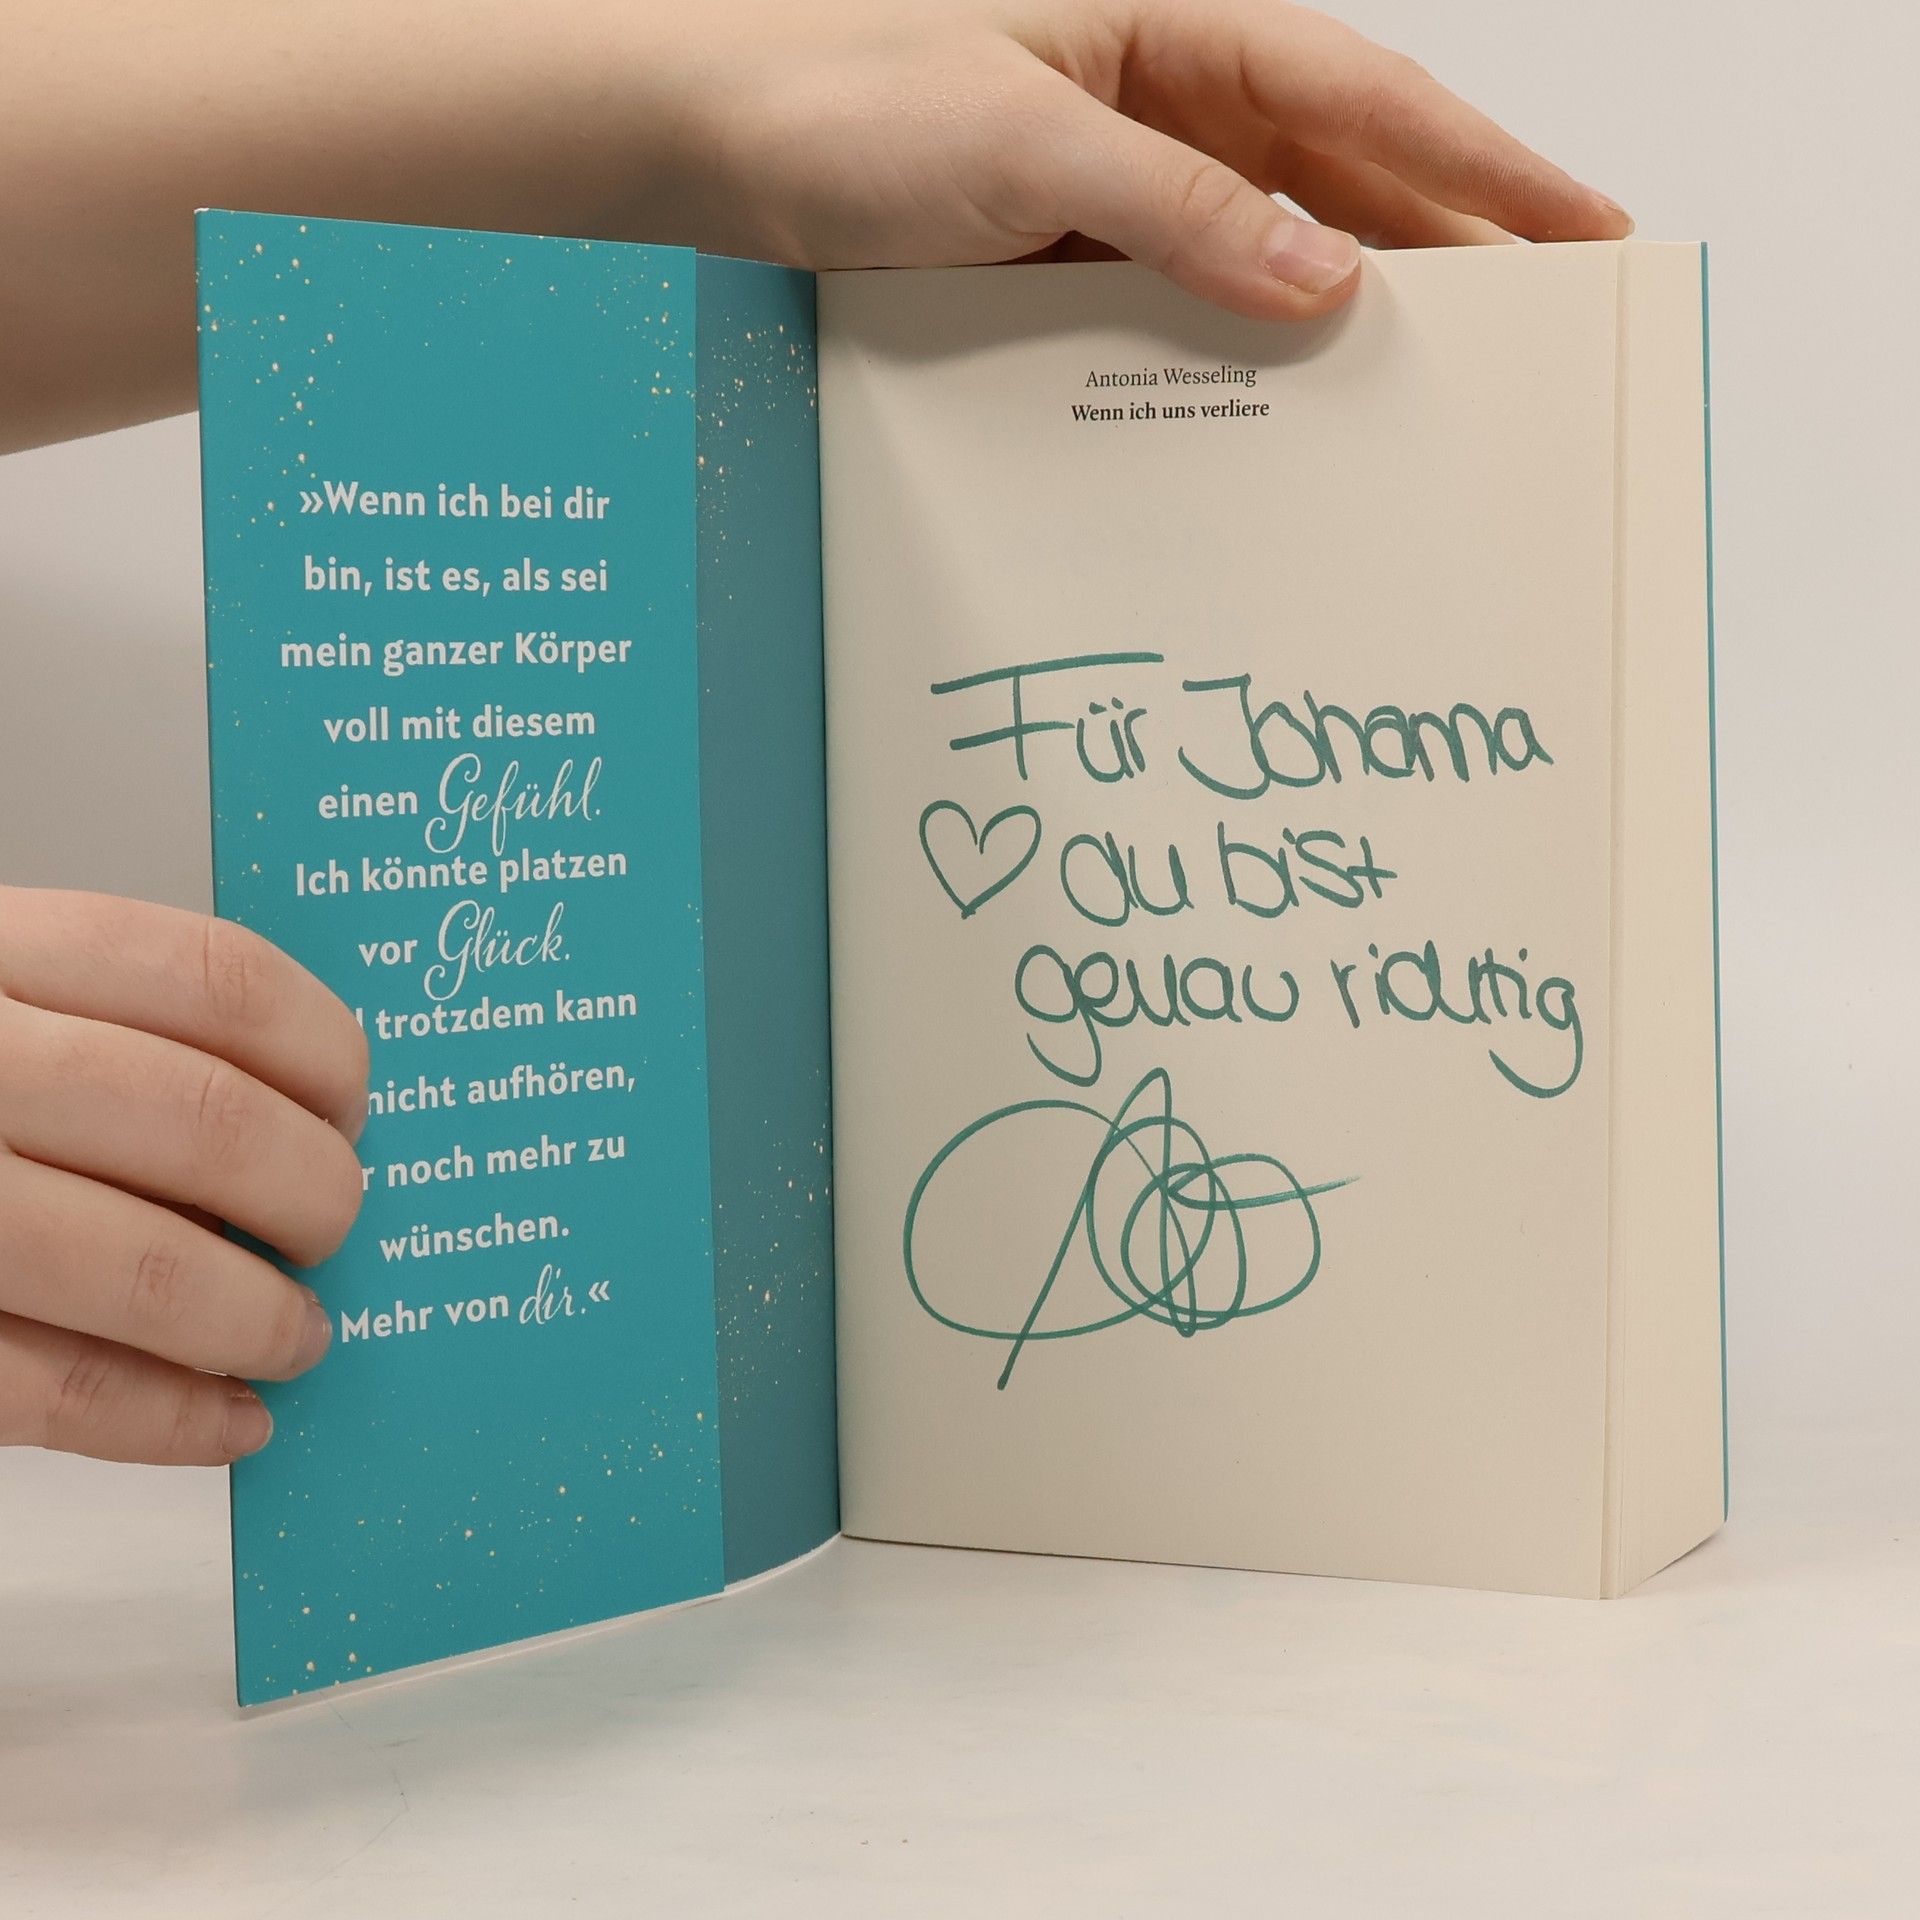 »Wenn ich bei dir
bin, ist es, als sei
mein ganzer Körper
voll mit diesem
einen Gefühl.
Ich könnte platzen
vor Glück.
trotzdem kann
nicht aufhören,
noch mehr zu
wünschen.
Mehr von dir.«
Antonia Wesseling
Wenn ich uns verliere
Für Johanna
du bist
genau richtig